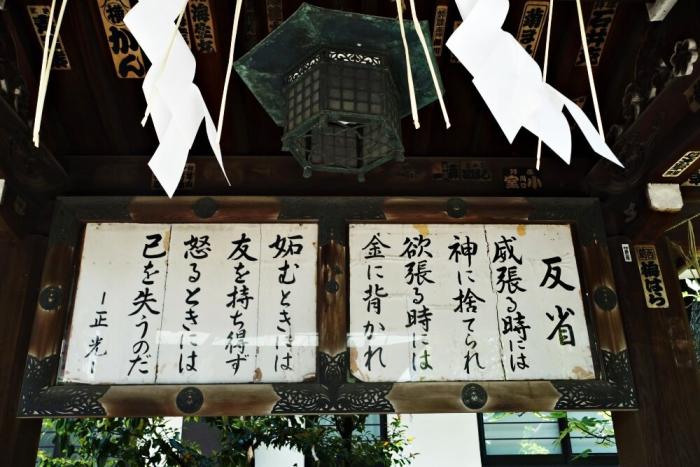 反省
威張る時には
神に捨てられ
欲張る時には
金に背かれ
妬むときには
友を持ち得ず
怒るときには
己を失うのだ
ー正光ー
梅ばら